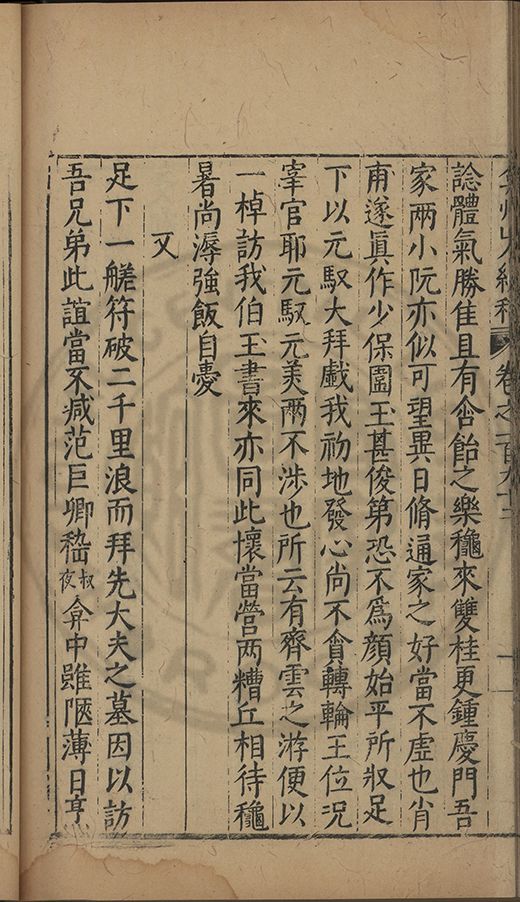 弇州山人續稿 卷之一百九十二
諗體氣勝隹且有含飴之樂穐來雙桂更鍾慶門吾
家兩小阮亦似可望異日脩通家之好當不虛也肖
甫遂眞作少保圍玉甚俊第恐不爲顏始平所叔足
下以元馭大拜戲我初地發心尚不貪轉輪王位況
宰官耶元馭元美兩不涉也所云有齊雲之游便以
一棹訪我伯玉書來亦同此懷當營两糟丘相待穐
暑尚溽強飯自愛
又
足下一艖符破二千里浪而拜先大夫之墓因以訪
吾兄弟此誼當不减范巨卿嵇叔夜弇中雖陋薄日亨